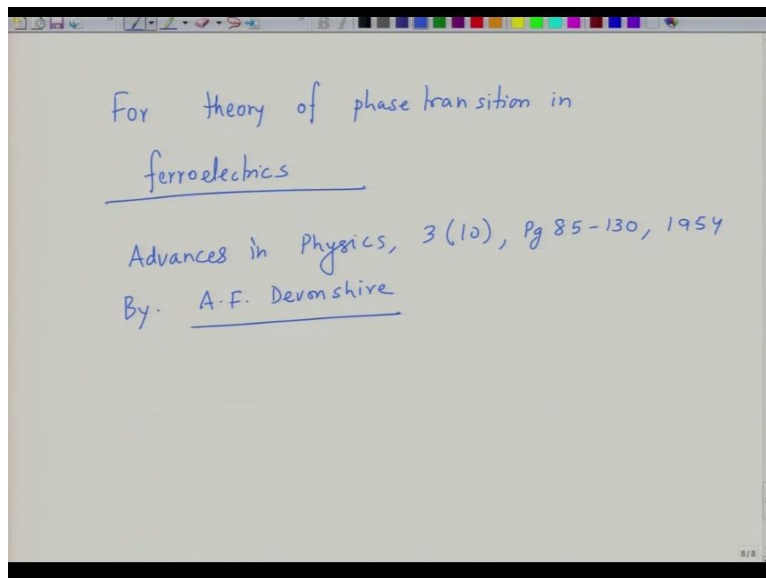 For theory of phase transition in
ferroelectrics
Advances in Physics, 3(10), Pg 85-130, 1954
By. A.F. Devonshire
8/8